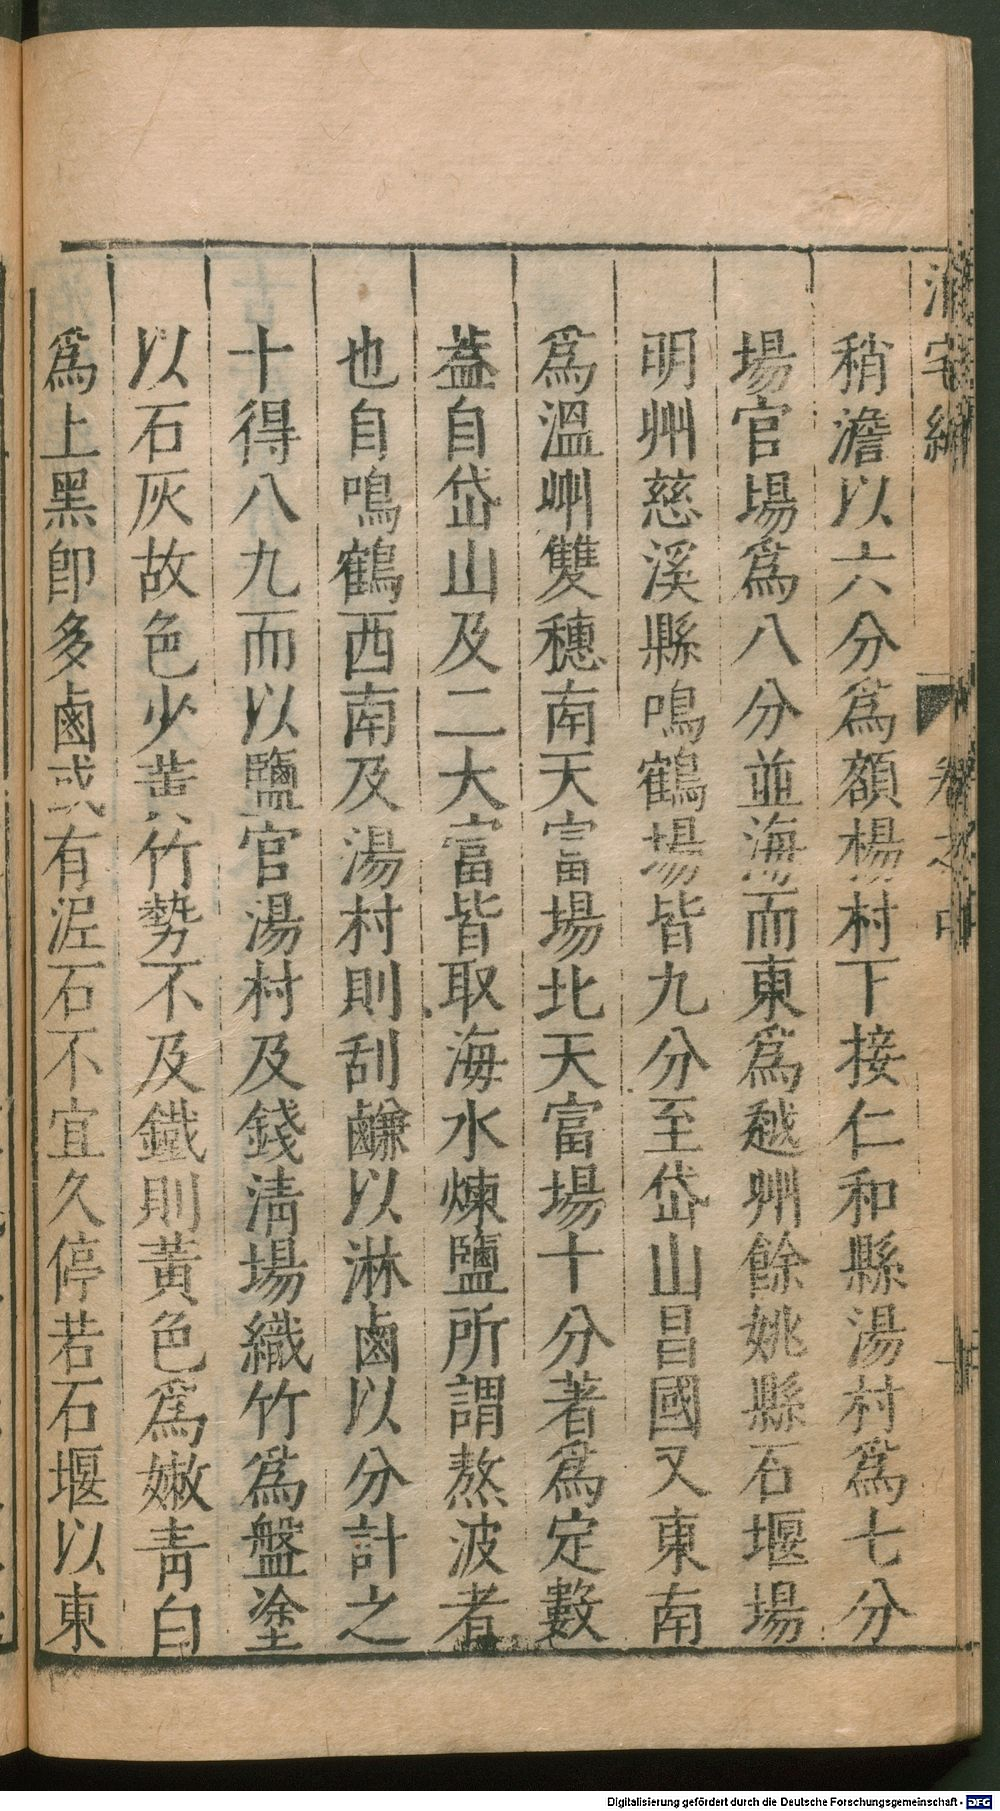 稍澹以六分爲額楊村下接仁和縣湯村爲七分
場官場爲八分並海而東爲越州餘姚縣石堰場
明州慈溪縣鳴鶴場皆九分至岱山昌國又東南
爲溫州雙穗南天富場北天富場十分著爲定數
葢自岱山及二大富皆取海水煉鹽所謂熬波者
也自鳴鶴西南及湯村則刮鹻以淋鹵以分計之
十得八九而以鹽官湯村及錢清場織竹爲盤塗
以石灰故色少黃竹勢不及鐵則黃色爲嫩青白
爲上黑卽多鹵或有泥石不宜久停若石堰以東
卷之中
Digitalisierung gefördert durch die Deutsche Forschungsgemeinschaft - DFG